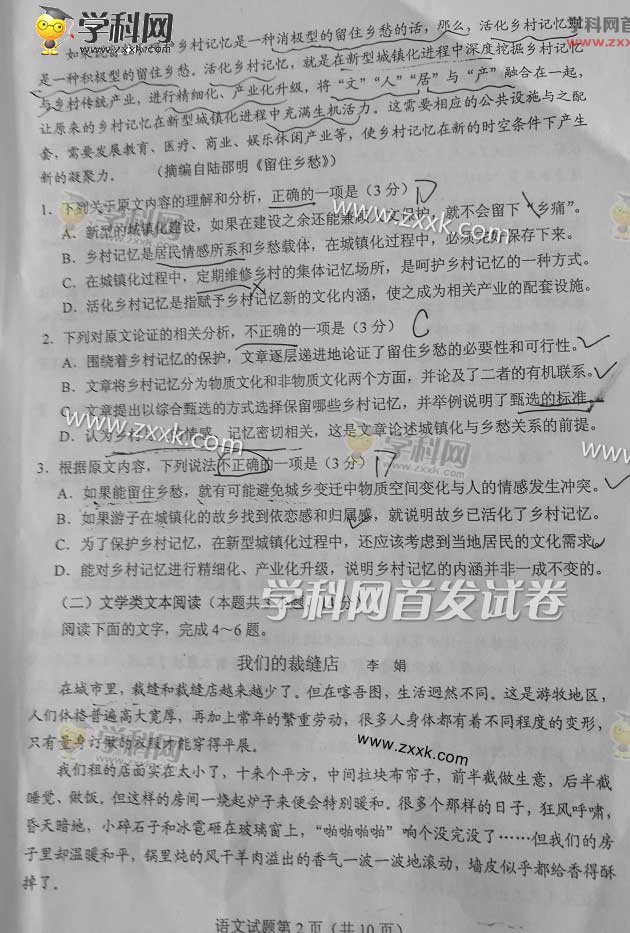 学科网
zxxk.com
学科网首
www.zx
乡村记忆是一种消极型的留住乡愁的话，那么，活化乡村记忆
是一种积极型的留住乡愁。活化乡村记忆，就是在新型城镇化进程中深度挖掘乡村记忆
与乡村传统产业，进行精细化、产业化升级，将“文”“人”“居”与“产”融合在一起，
让原来的乡村记忆在新型城镇化进程中充满生机活力。这需要相应的公共设施与之配
套，需要发展教育、医疗、商业、娱乐休闲产业等，使乡村记忆在新的时空条件下产生
新的凝聚力。（摘编自陆邵明《留住乡愁》）
1．下列关于原文内容的理解和分析，正确的一项是（3分）D
A．新型的城镇化建设，如果在建设之余还能兼顾人文保护，就不会留下“乡痛”。
B．乡村记忆是居民情感所系和乡愁载体，在城镇化过程中，必须完好保存下来。
C．在城镇化过程中，定期维修乡村的集体记忆场所，是呵护乡村记忆的一种方式。
D．活化乡村记忆是指赋予乡村记忆新的文化内涵，使之成为相关产业的配套设施。
2．下列对原文论证的相关分析，不正确的一项是（3分）C
A．围绕着乡村记忆的保护，文章逐层递进地论证了留住乡愁的必要性和可行性。
B．文章将乡村记忆分为物质文化和非物质文化两个方面，并论及了二者的有机联系。
C．文章提出以综合甄选的方式选择保留哪些乡村记忆，并举例说明了甄选的标准。
D．认为乡愁与情感、记忆密切相关，这是文章论述城镇化与乡愁关系的前提。
3．根据原文内容，下列说法不正确的一项是（3分）
A．如果能留住乡愁，就有可能避免城乡变迁中物质空间变化与人的情感发生冲突。
B．如果游子在城镇化的故乡找到依恋感和归属感，就说明故乡已活化了乡村记忆。
C．为了保护乡村记忆，在新型城镇化过程中，还应该考虑到当地居民的文化需求。
D．能对乡村记忆进行精细化、产业化升级，说明乡村记忆的内涵并非一成不变的。
学科网首发试卷
（二）文学类文本阅读（本题共3小题
阅读下面的文字，完成4～6题。
我们的裁缝店 李 娟
在城市里，裁缝和裁缝店越来越少了。但在喀吾图，生活迥然不同。这是游牧地区，
人们体格普遍高大宽厚，再加上常年的繁重劳动，很多人身体都有着不同程度的变形，
只有量身订做的衣服才能穿得平展。
www.zxxk.com
我们租的店面实在太小了，十来个平方，中间拉块布帘子，前半截做生意，后半截
睡觉、做饭。但这样的房间一烧起炉子来便会特别暖和。很多个那样的日子，狂风呼啸，
昏天暗地，小碎石子和冰雹砸在玻璃窗上，“啪啪啪啪”响个没完没了……但我们的房
子里却温暖和平，锅里炖的风干羊肉溢出的香气一波一波地滚动，墙皮似乎都给香得酥
掉了。
语文试题第2页（共10页）